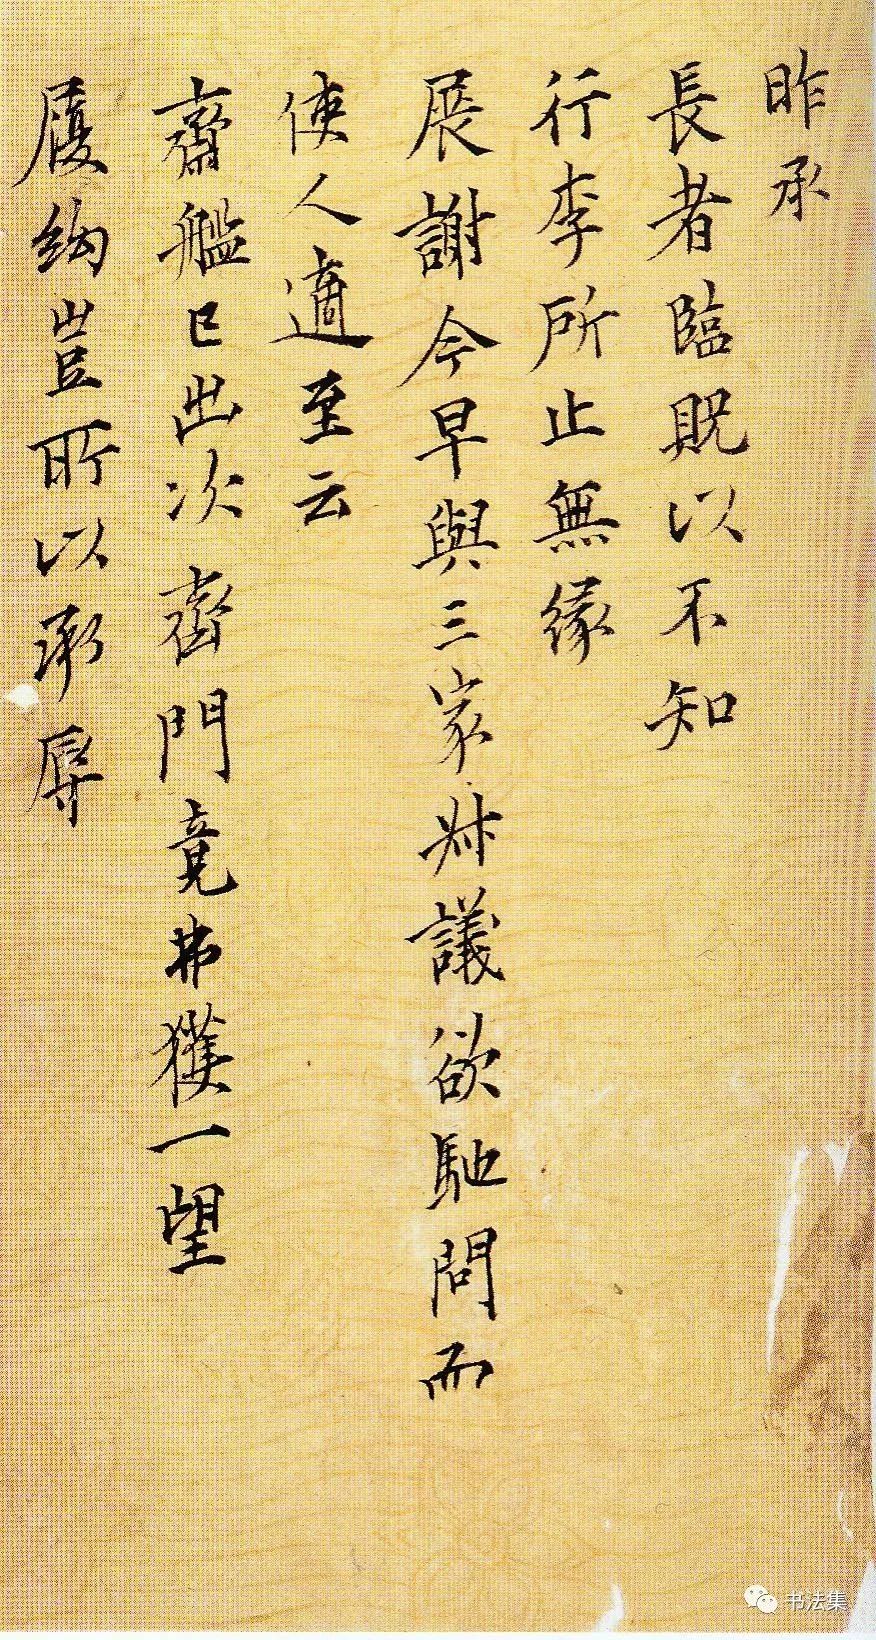 昨承
長者臨貺以不知
行李所止無緣
展謝今早與三家叔議欲馳問而
使人適至云
齋艦已出次齊門竟弗獲一望
履絇豈所以承辱
书法集